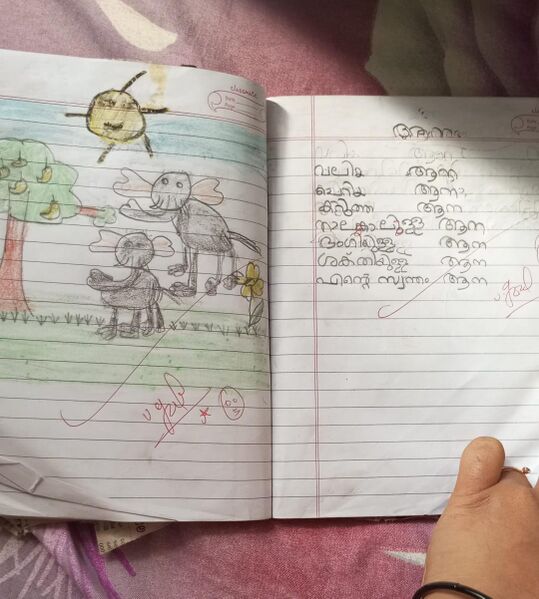 classmate
Date
Page
"Good"
ആന
വലിയ ആന
ചെറിയ ആന
കറുത്ത ആന
നാലുകാലുള്ള ആന
ഭംഗിയുള്ള ആന
ശക്തിയുള്ള ആന
എന്റെ സ്വന്തം ആന
"Good